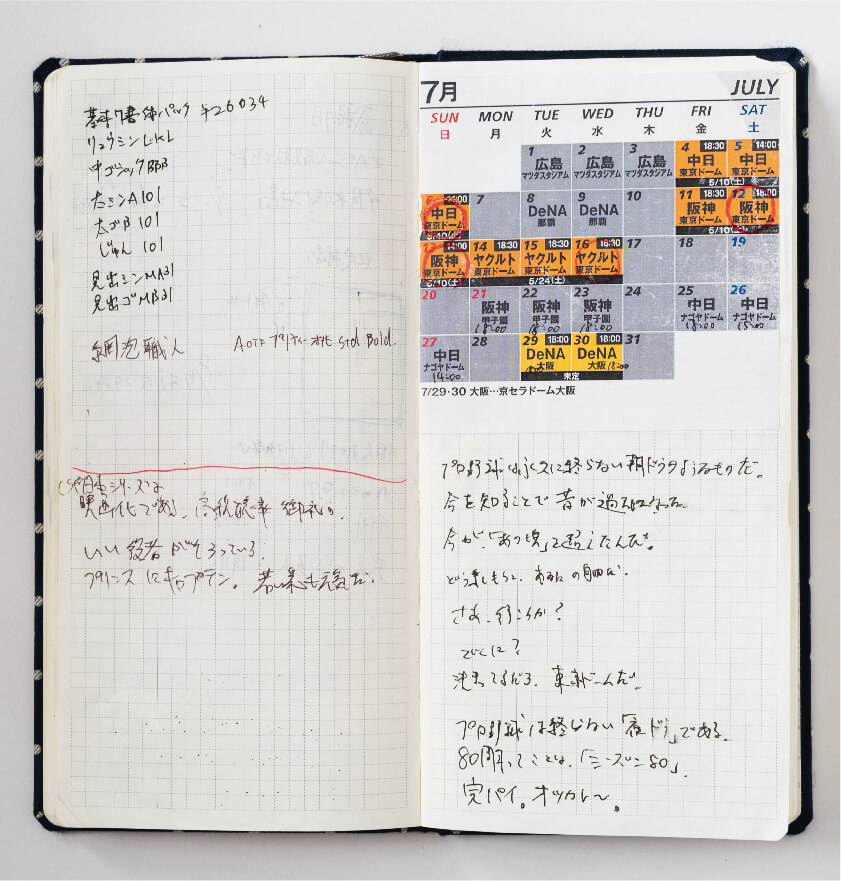 基本7書体パック ¥26034
リュウミンL-KL
中ゴシックBBB
太ミンA101
太ゴB101
じゅん 101
見出ミンMA31
見出ゴMB31
職人 AOTF Std Bold.
シリーズは
映画化である 高視聴率 御礼の
いい役者がそろっている。
プリンスにキャプテン。元気だ。
7月 JULY
SUN MON TUE WED THU FRI SAT
日 月 火 水 木 金 土
1 2 3 4 18:30 5 14:00
広島 広島 広島 中日 中日
マツダスタジアム マツダスタジアム マツダスタジアム 東京ドーム 東京ドーム
5/10(土)
6 14:00 7 8 9 10 11 18:30 12
中日 DeNA DeNA 阪神 阪神
東京ドーム 那覇 那覇 東京ドーム 東京ドーム
5/10(土)
13 14:00 14 18:30 15 18:30 16 18:30 17 18 19
阪神 ヤクルト ヤクルト ヤクルト
東京ドーム 東京ドーム 東京ドーム 東京ドーム
5/10(土) 5/24(土)
20 21 22 23 24 25 26
阪神 阪神 阪神 中日 中日
甲子園 甲子園 甲子園 ナゴヤドーム ナゴヤドーム
18:00 18:00 18:00 18:00 15:00
27 28 29 18:00 30 18:00 31
中日 DeNA DeNA
ナゴヤドーム 大阪 大阪 18:00
14:00 未定
7/29・30 大阪…京セラドーム大阪
プロ野球は永久に終らない朝ドラのようなものだ。
今を知ることで昔が過去になった。
今が、「あの頃」を超えたんだ。
さあ、行こうか?
どこに?
決まってるだろ、東京ドームだ。
プロ野球は終らない「夜ドラ」である。
80周ってことは、「シーズン80」。
完パイ。オツカレ〜。